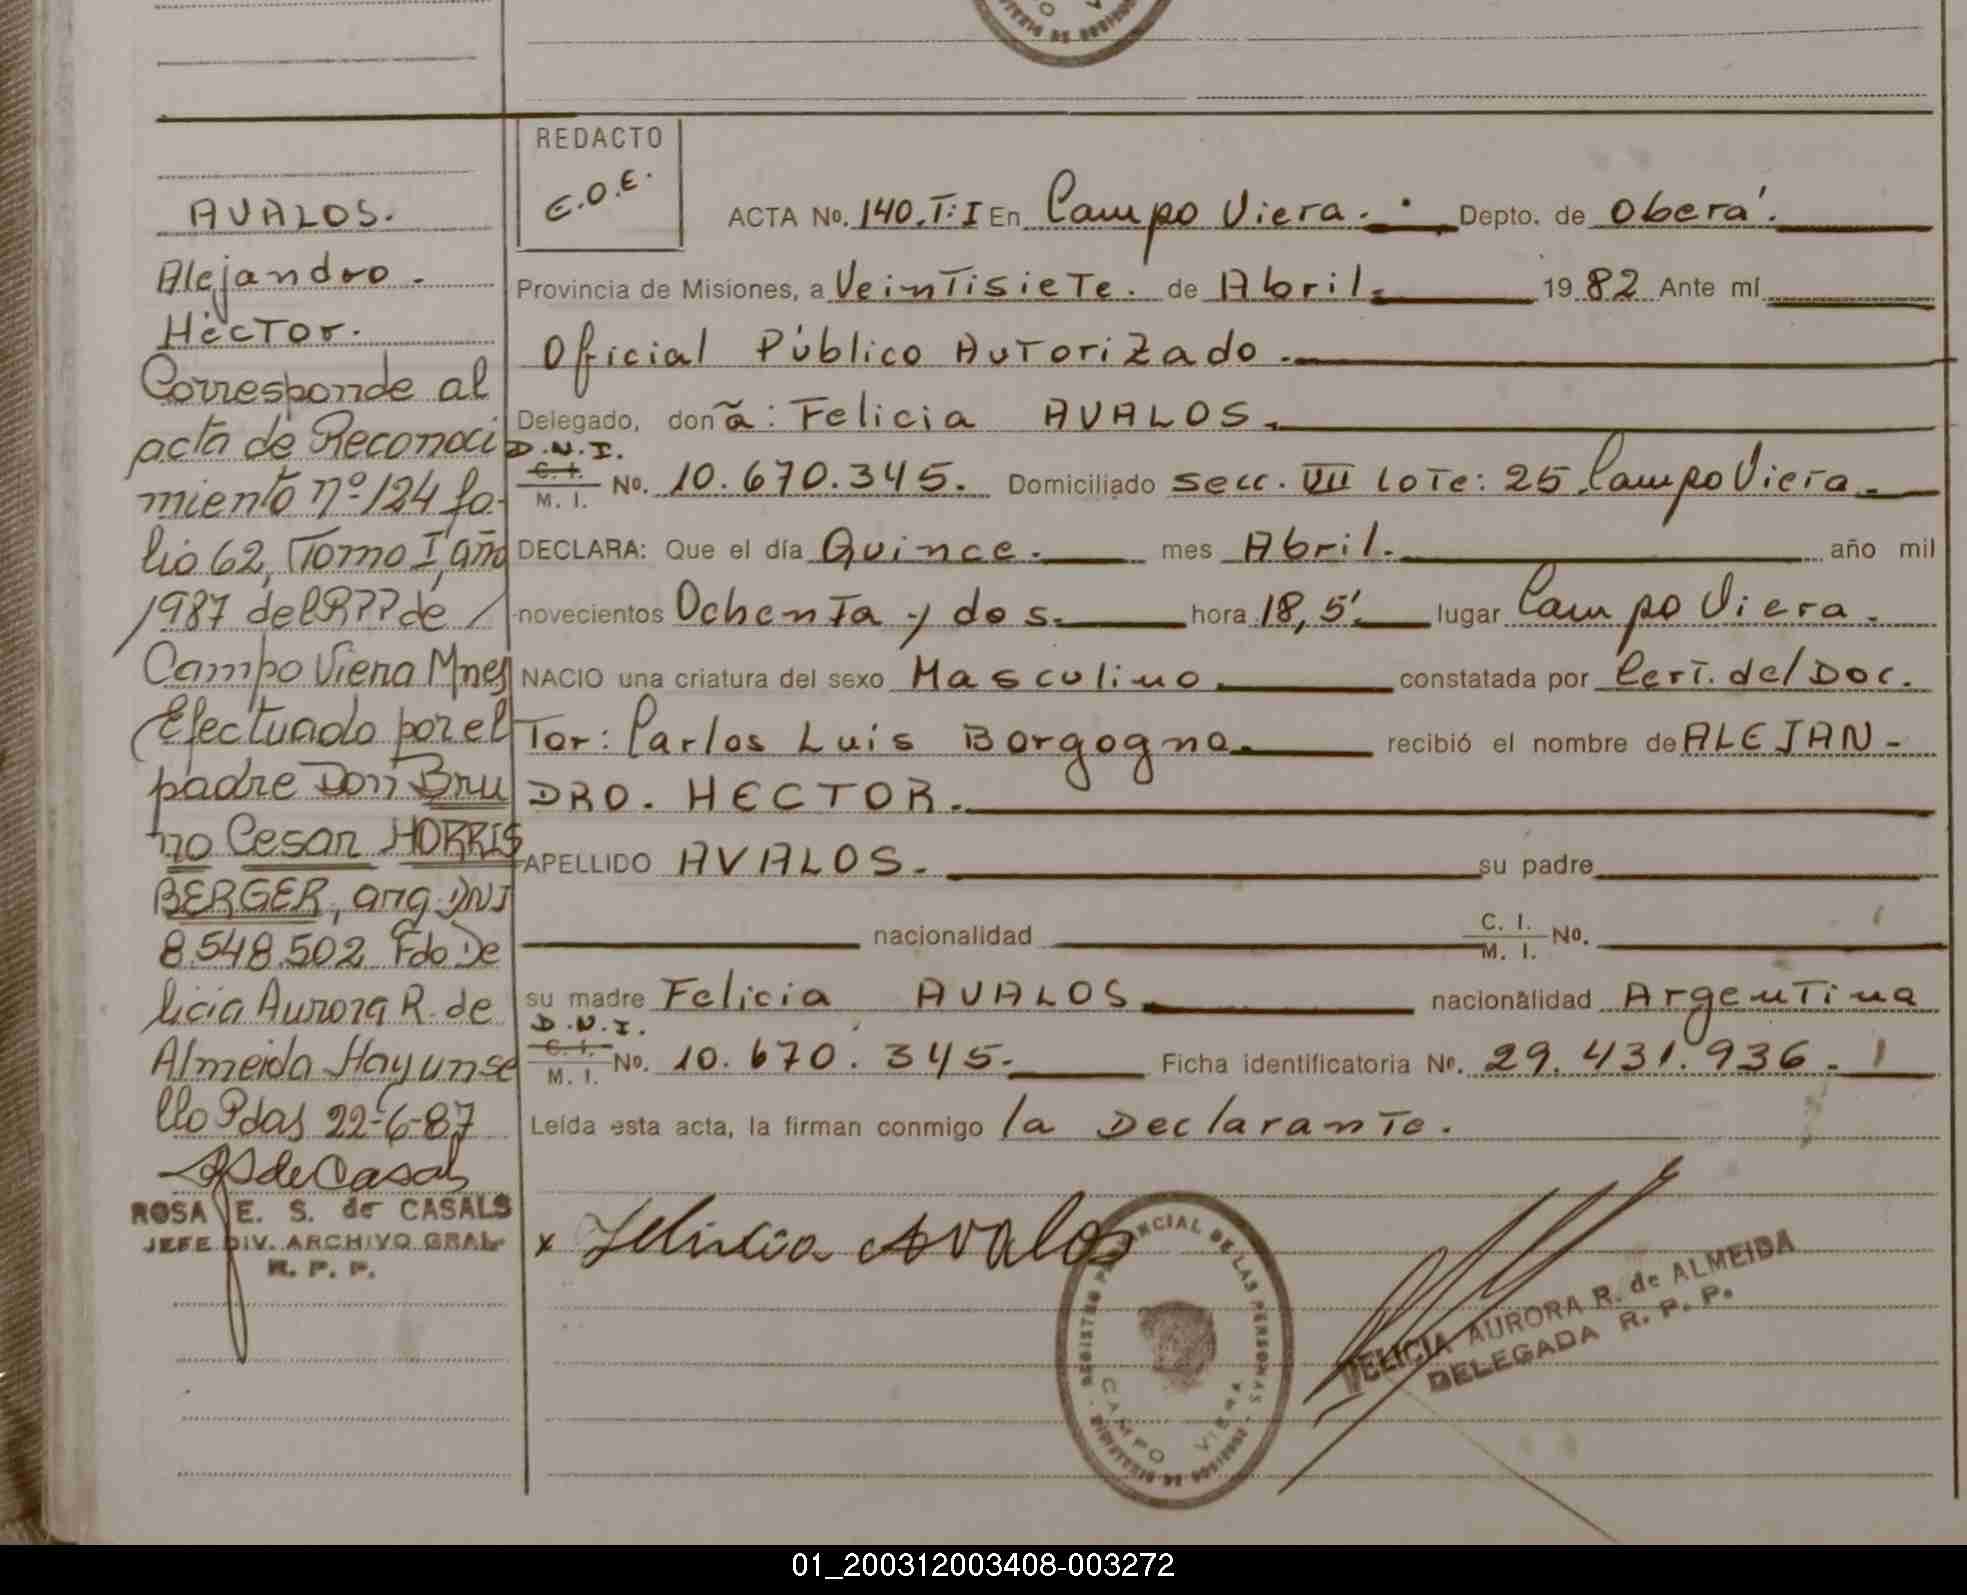 AVALOS.
Alejandro.
Héctor.
Corresponde al
acta de Reconoci
miento nº 124 fo-
lio 62, Tomo I, año
1987 del R.P.P. de
Campo Viera Mnes
Efectuado por el
padre Don Bru
no Cesar HORRIS
BERGER, arg. DNI
8.548.502 Fdo De
licia Aurora R. de
Almeida Hay un se
llo Pdas 22-6-87
ROSA E. S. de CASALS
JEFE DIV. ARCHIVO GRAL.
R. P. P.
REDACTO
E.O.E.
ACTA No. 140.T:I En Campo Viera. Depto. de Oberá.
Provincia de Misiones, a Veintisiete. de Abril. 19 82 Ante mí
Oficial Público Autorizado.
Delegado, doña: Felicia AVALOS.
D.N.I.
C. I. / M. I. No. 10.670.345. Domiciliado secc. VII Lote: 25 Campo Viera.
DECLARA: Que el día Quince. mes Abril. año mil
novecientos Ochenta y dos. hora 18,5'. lugar Campo Viera.
NACIO una criatura del sexo Masculino. constatada por Cert. del Doc.
Tor: Carlos Luis Borgogno. recibió el nombre de ALEJAN-
DRO. HECTOR.
APELLIDO AVALOS. su padre
nacionalidad C. I. / M. I. No.
su madre Felicia AVALOS. nacionalidad Argentina
D.N.I.
C. I. / M. I. No. 10.670.345. Ficha identificatoria No. 29.431.936.
Leída esta acta, la firman conmigo la Declarante.
x Felicia Avalos
REGISTRO PROVINCIAL DE LAS PERSONAS
CAMPO VIERA
DELICIA AURORA R. de ALMEIDA
DELEGADA R. P. P.
01_200312003408-003272